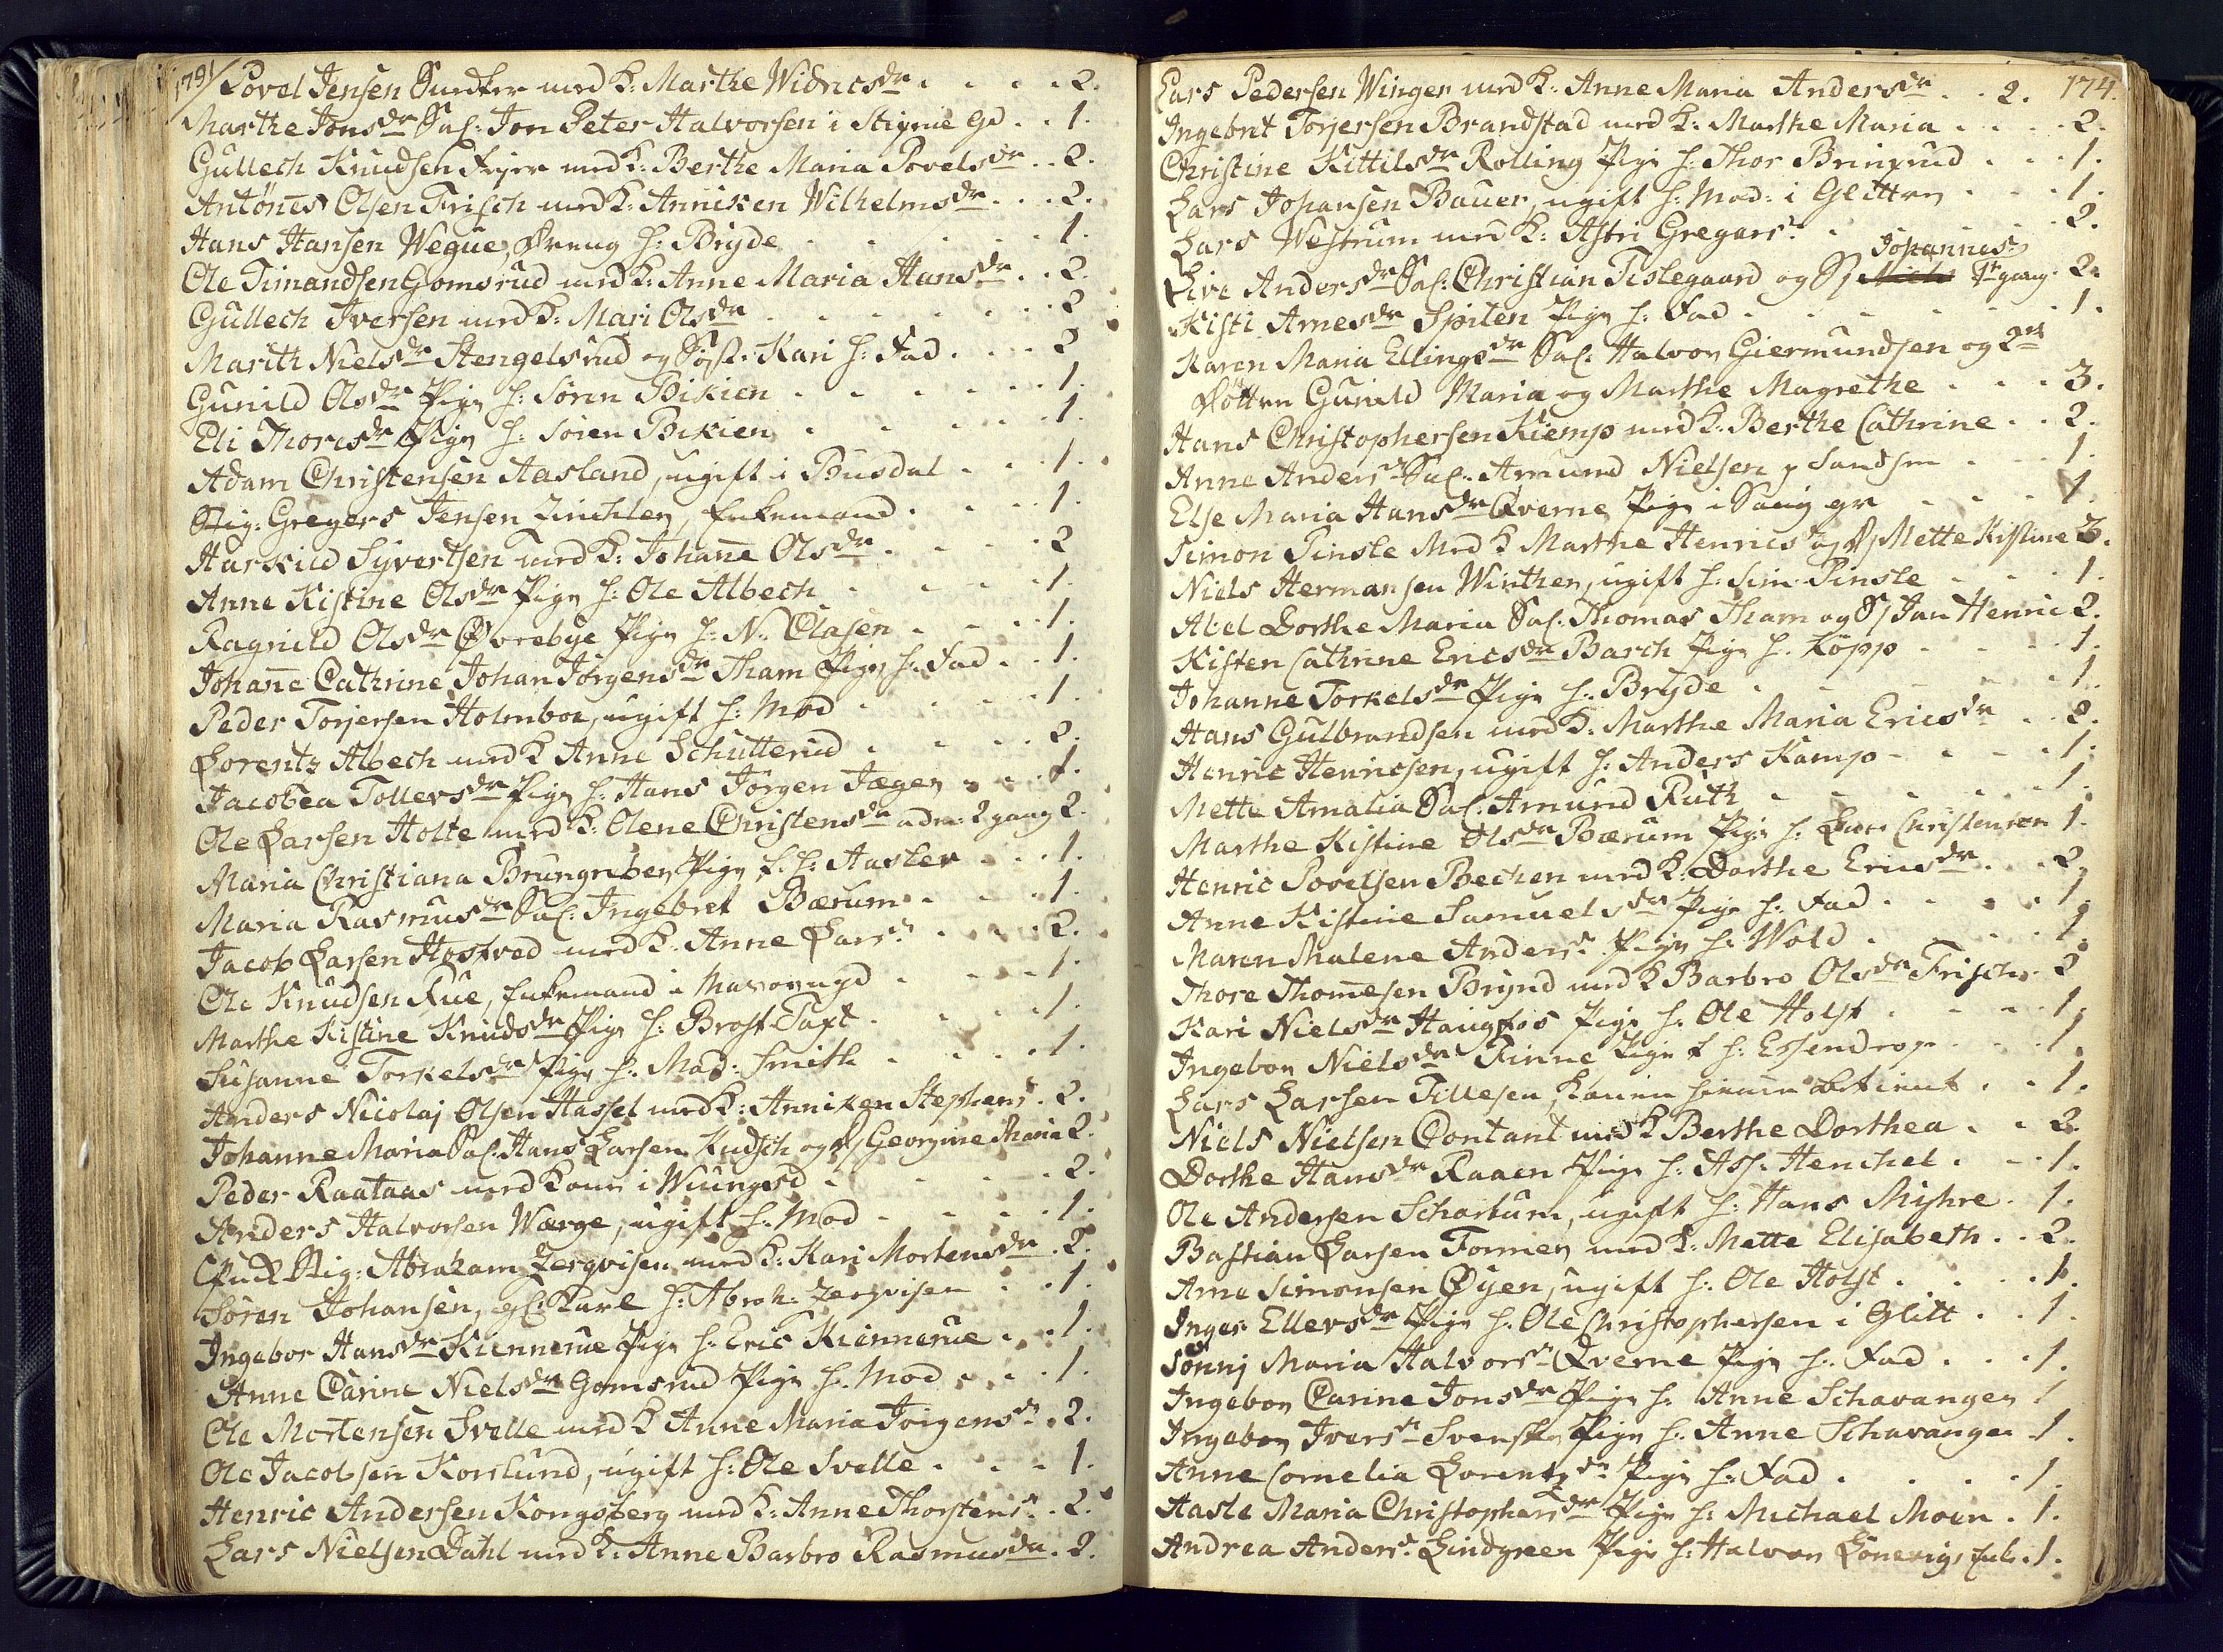 1791/ Povel Jensen med K: Marthe Widrics dr . . . . 2.
Marthe Jons dr Sal: Jon Peter Halvorsen i Stignie Gd . . 1.
Gullech Knudsen med K: Berthe Maria Povels dr . . 2.
Antönes Olsen Frisch med K: Anniken Wilhelms dr . . . 2.
Hans Hansen Wegue, Dreng h: Bryde . . . . . . 1.
Ole Timandsen Gomsrud med K: Anne Maria Hans dr . . 2.
Gullech Iversen med K: Mari Ols dr . . . . . . 2
Marith Niels dr Stengelsrud og Søst: Kari h: Fad . . . 2
Gunild Ols dr Pige h: Sören Bikien . . . . . 1.
Eli Thores dr Pige h: Sören Bikien . . . . . 1.
Adam Christensen Aasland, ugift i Busdal . . . 1.
Stig: Gregers Jensen Zinchler, Enkemand . . . . 1.
Harkild Syvertsen med K: Johanne Ols dr . . . . 2
Anne Kistine Ols dr Pige h: Ole Albech . . . . 1.
Ragnild Ols dr Øvrebye Pige h: N. Clasen . . . . 1.
Johanne Cathrine Johan Jörgens dr Tham Pige h: Fad . . 1.
Peder Torjersen Holmboe, ugift h: Mod . . . . 1.
Lorentz Albech med K Anne Schutterud . . . . 2.
Jacobea Tollevs dr Pige h: Hans Jörgen Jæger . . . 1.
Ole Larsen Holte med K: Olene Christens dr adm: 2 gang 2.
Maria Christiana Brungreber, Pige f. h: Aasler . . . 1.
Maria Rasmus dr Sal: Ingebret Bærum . . . . 1.
Jacob Larsen Hosfved med K: Anne Lars dr . . . . 2.
Ole Knudsen Rue, Enkemand i . . . . 1.
Marthe Kistine Knuds dr Pige h: Taxt . . . . 1.
Susanne Torkels dr Pige h: Mad: Smith . . . . 1.
Anders Nicolaj Olsen Hassel med K: Anniken Stephens dr . 2.
Johanne Maria Sal: Hans Larsen Kudsch og D Georgine Maria 2.
Peder Raataas med Kone i . . . . . 2.
Anders Halvorsen Wærge, ugift h: Mod . . . . 1.
Stig: Abraham Zergvisen med K: Kari Mortens dr . 2.
Sören Johansen, gl: Karl h: Abrah: Zergvisen . . 1.
Ingebor Hans dr Kiennerue Pige h: Eric Kiennerue . . 1.
Anne Carine Niels dr Gomsrud Pige h: Mod . . . 1.
Ole Mortensen Svelle med K Anne Maria Jörgens dr . 2.
Ole Jacobsen Korslund, ugift h: Ole Svelle . . . 1.
Henric Andersen Kongsberg med K: Anne Thorstens dr . 2.
Lars Nielsen Dahl med K: Anne Barbro Rasmus dr . 2.
174.
Lars Pedersen Winger med K: Anne Maria Anders dr . . 2.
Ingebret Torjersen Brandstad med K: Marthe Maria . . . . 2.
Christine Kittils dr Rolling Pige h: Thor . . . 1.
Lars Johansen Bauer, ugift h: Mad: i Glitten . . . . 1.
Lars Westrum med K: Astri Gregars dr . . . . 2.
Johannes
Live Anders dr Sal: Christian Tislegaard og S 1te gang . 2.
Kisti Arnes dr Spiten Pige h: Fad . . . . . . 1.
Karen Maria Ellings dr Sal: Halvor Giermundsen og 2de
Døttre Gunild Maria og Marthe Magrethe . . . 3.
Hans Christophersen Kiemp med K: Berthe Cathrine . . 2.
Anne Anders dr Sal: Amund Nielsen . . . 1.
Else Maria Hans dr Qverne Pige i . . . . 1
Simon Pinsle Med K Marthe Henrics dr og D Mette Kistine 3.
Niels Hermansen Winther, ugift h: Sim: Pinsle . . . 1.
Abel Dorthe Maria Sal: Thomas Tham og S Jan Henric 2.
Kisten Cathrine Erics dr Barch Pige h: Köpp . . . . 1.
Johanne Torkels dr Pige h: Bryde . . . . . . 1.
Hans Gulbrandsen med K: Marthe Maria Erics dr . . 2.
Henric Henricsen, ugift h: Anders Kamp . . . . 1.
Mette Amalia Sal: Amund Ruth . . . . . 1.
Marthe Kistine Ols dr Bærum Pige h: Lars Christensen 1.
Henric Povelsen Becker med K: Dorthe Erics dr . . 2.
Anne Kistine Samuels dr Pige h: Fad . . . . 1.
Maren Malene Anders dr Pige h: Wold . . . . 1.
Thore Thomesen Brynd med K Barbro Ols dr Frisch . 2
Kari Niels dr Haugfos Pige h: Ole Holst . . . . 1.
Ingebor Niels dr Rinne Pige f h: Essendrop . . . 1.
Lars Larsen Tillesen, . . 1.
Niels Nielsen Contant med K Berthe Dorthea . . 2.
Dorthe Hans dr Raaen Pige h: Ass: Henchel . . . 1.
Ole Andersen Schartum, ugift h: Hans Myhre . 1.
Bastian Larsen Former med K: Mette Elisabeth . . 2.
Arne Simonsen Øyen, ugift h: Ole Holst . . . . 1.
Inger Ellevs dr Pige h: Ole Christophersen i Glitt . . 1.
Sönnj Maria Halvors dr Qverne Pige h: Fad . . . 1.
Ingebor Carine Jons dr Pige h: Anne Schavanger 1
Ingebor Ivers dr Svensk Pige h: Anne Schavanger 1.
Anne Cornelia Lorentz dr Pige h: Fad . . . . 1.
Aasle Maria Christophers dr Pige h: Michael Moen . 1.
Andrea Anders dr Lindgreen Pige h: Halvor . 1.